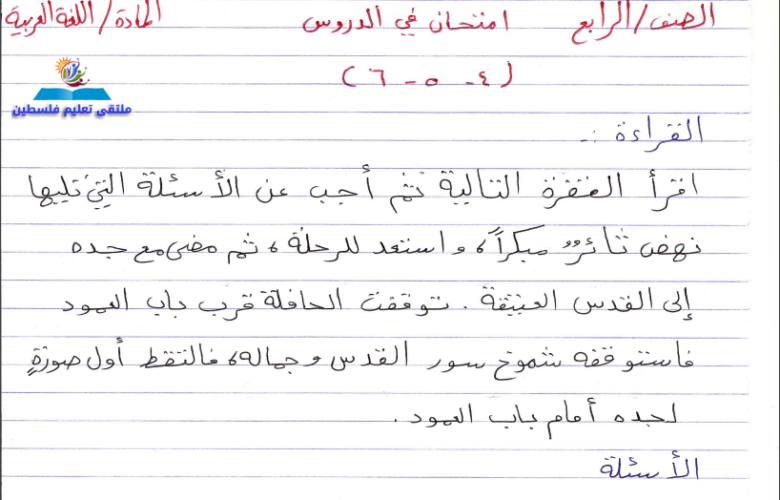 الصف/الرابع امتحان في الدروس المادة/اللغة العربية
(٤ - ٥ - ٦)
ملتقى تعليم فلسطين
القراءة :-
اقرأ الفقرة التالية ثم أجب عن الأسئلة التي تليها
نهض ثائرٌ مبكراً، واستعد للرحلة، ثم مضى مع جده
إلى القدس العتيقة. توقفت الحافلة قرب باب العمود
فاستوقفه شموخ سور القدس وجماله، فالتقط أول صورةٍ
لجده أمام باب العمود.
الأسئلة